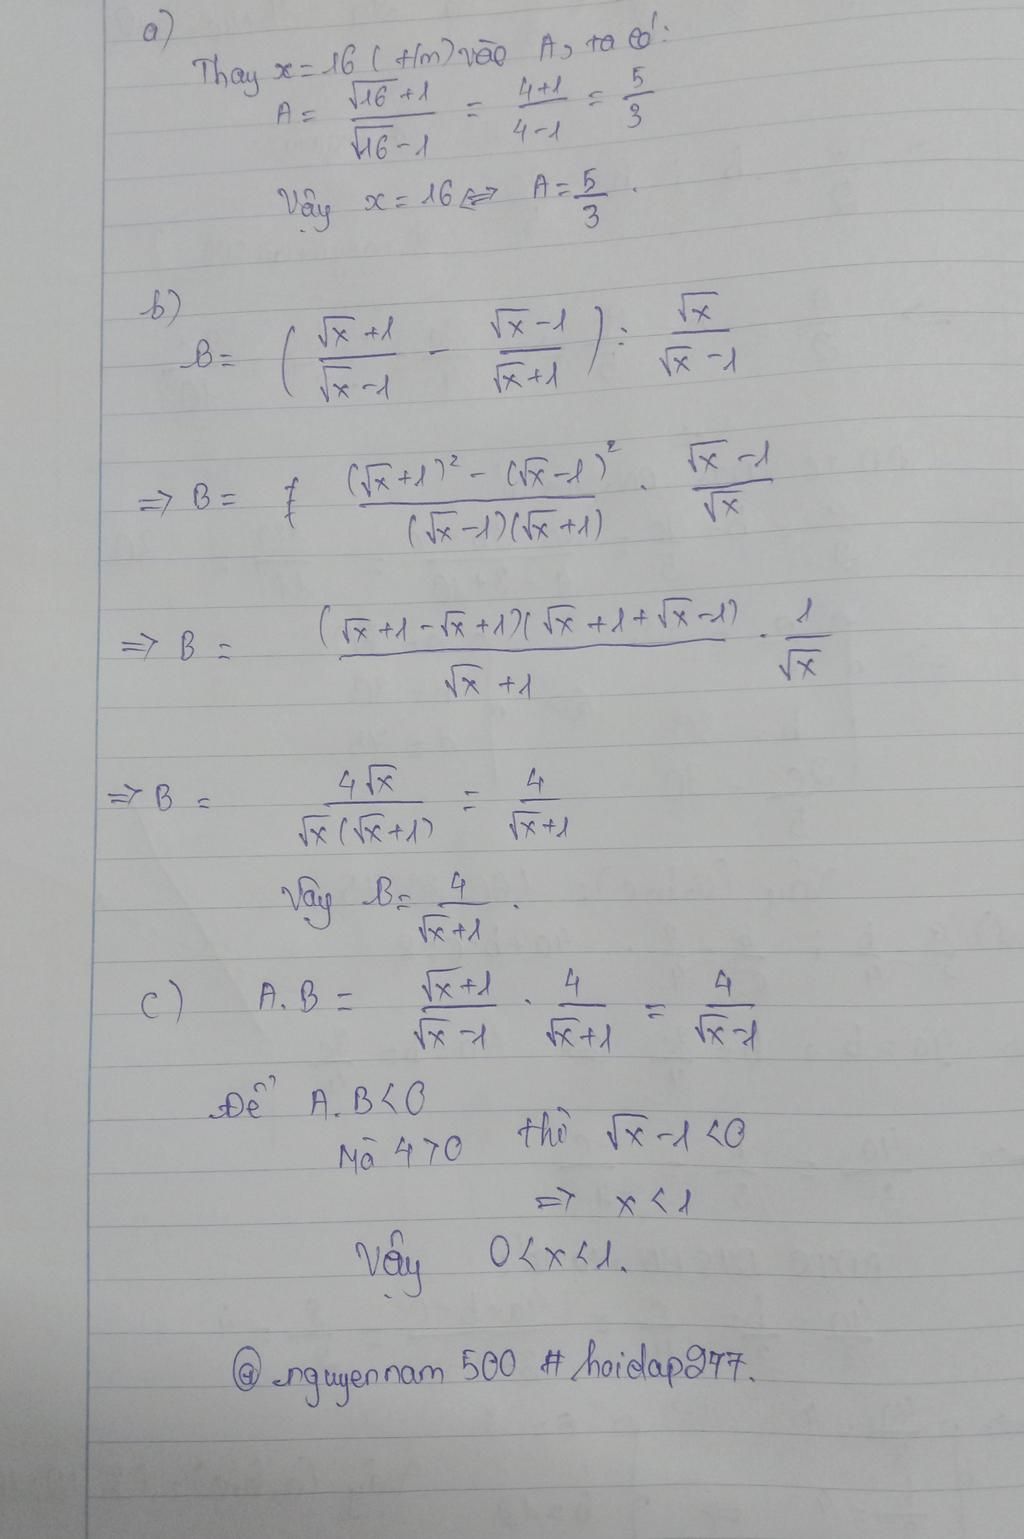 a)
Thay x = 16 (t/m) vào A, ta có:
A = \frac{\sqrt{16}+1}{\sqrt{16}-1} = \frac{4+1}{4-1} = \frac{5}{3}
Vậy x = 16 <=> A = \frac{5}{3}.
b)
B = (\frac{\sqrt{x}+1}{\sqrt{x}-1} - \frac{\sqrt{x}-1}{\sqrt{x}+1}) : \frac{\sqrt{x}}{\sqrt{x}-1}
=> B = \frac{(\sqrt{x}+1)^2 - (\sqrt{x}-1)^2}{(\sqrt{x}-1)(\sqrt{x}+1)} . \frac{\sqrt{x}-1}{\sqrt{x}}
=> B = \frac{(\sqrt{x}+1-\sqrt{x}+1)(\sqrt{x}+1+\sqrt{x}-1)}{\sqrt{x}+1} . \frac{1}{\sqrt{x}}
=> B = \frac{4\sqrt{x}}{\sqrt{x}(\sqrt{x}+1)} = \frac{4}{\sqrt{x}+1}
Vậy B = \frac{4}{\sqrt{x}+1}.
c) A.B = \frac{\sqrt{x}+1}{\sqrt{x}-1} . \frac{4}{\sqrt{x}+1} = \frac{4}{\sqrt{x}-1}
Để A.B < 0
Mà 4 > 0 thì \sqrt{x}-1 < 0
=> x < 1
Vậy 0 < x < 1.
@nguyennam 500 # hoidap247.